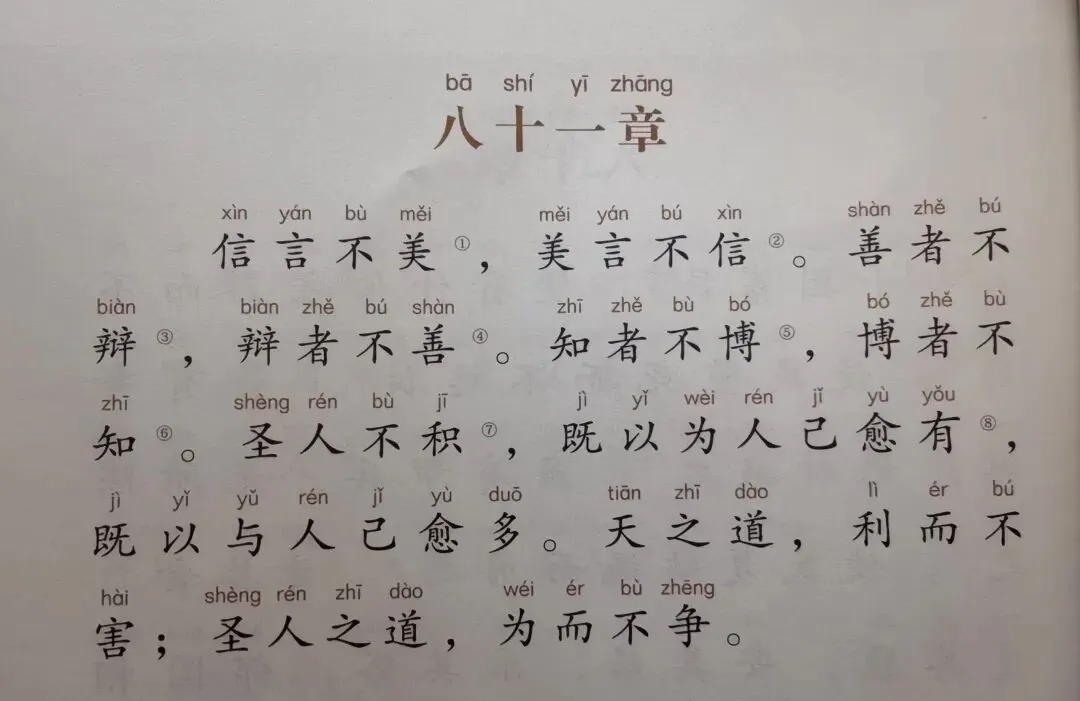 bā shí yī zhāng
八十一章
xìn yán bù měi měi yán bú xìn shàn zhě bú
信言不美①，美言不信②。善者不
biàn biàn zhě bú shàn zhī zhě bù bó bó zhě bù
辩③，辩者不善④。知者不博⑤，博者不
zhī shèng rén bù jī jì yǐ wèi rén jǐ yù yǒu
知⑥。圣人不积⑦，既以为人己愈有⑧，
jì yǐ yǔ rén jǐ yù duō tiān zhī dào lì ér bú
既以与人己愈多。天之道，利而不
hài shèng rén zhī dào wéi ér bù zhēng
害；圣人之道，为而不争。